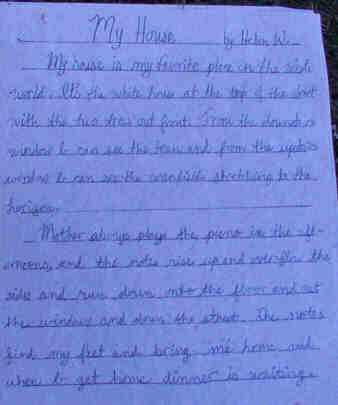 My House by Helen W.
My house is my favorite place in the whole
world. It's the white house at the top of the street
with the two trees out front. From the downstairs
window I can see the town and from the upstairs
window I can see the cornfields stretching to the
horizon.
Mother always plays the piano in the aft-
ernoons, and the notes rise up and overflow the
sides and run down onto the floor and out
the window and down the street. The notes
find my feet and bring me home and
when I get home dinner is waiting.